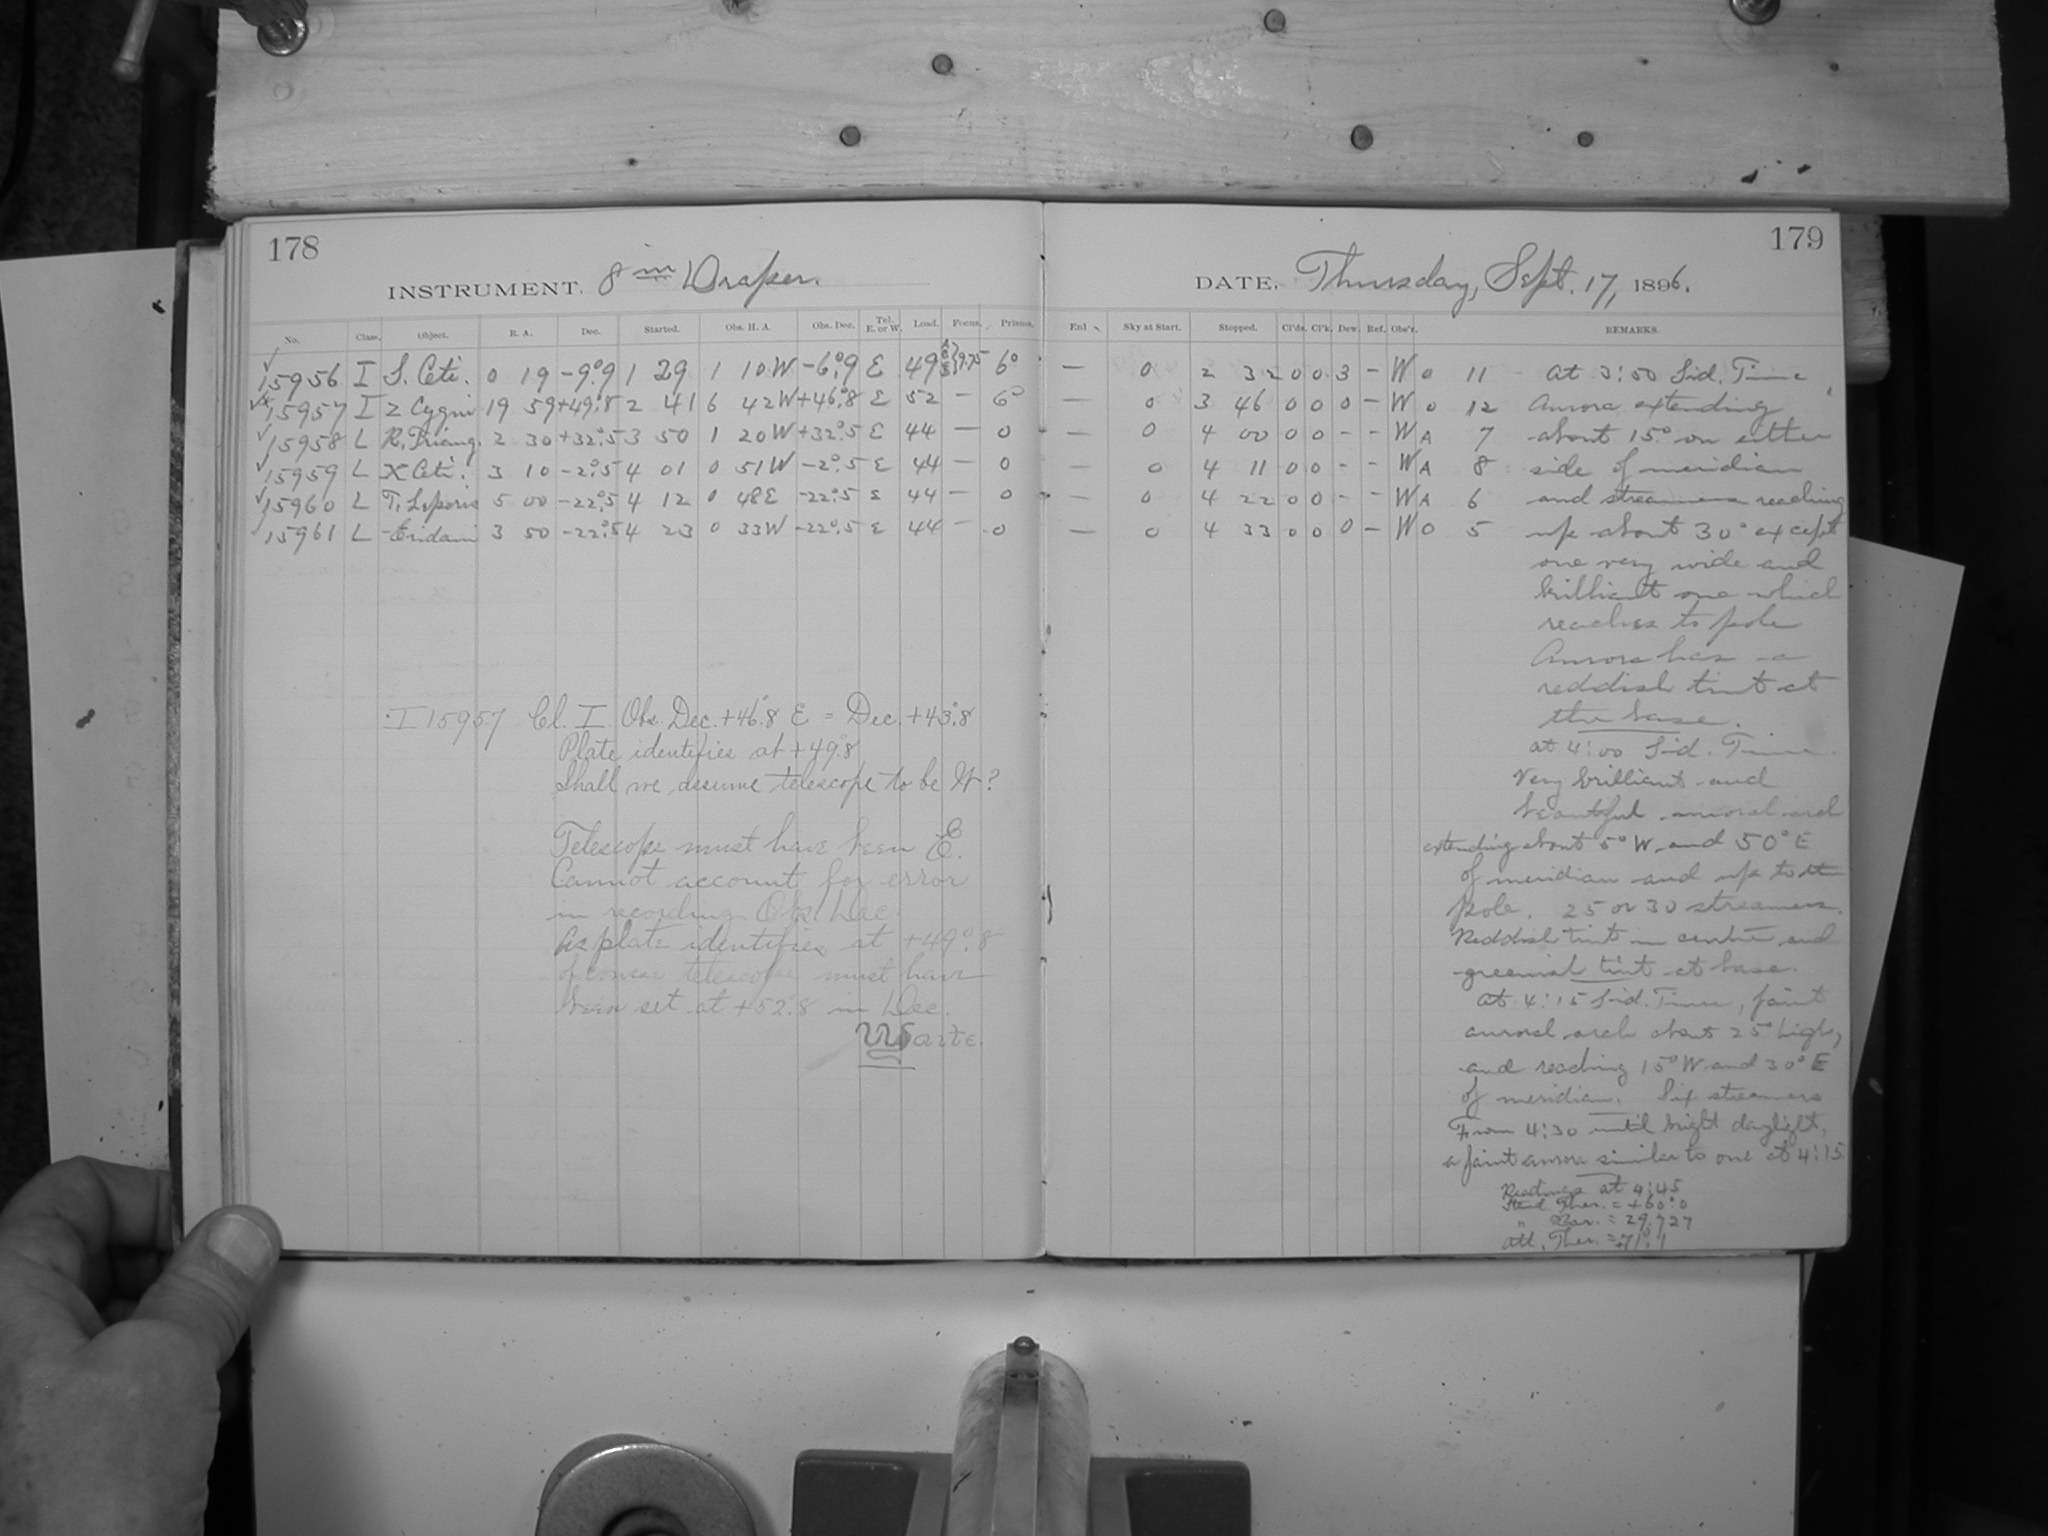 178
INSTRUMENT. 8 in Draper.
No. Class. Object. R. A. Dec. Started. Obs. H. A. Obs. Dec. Tel. E. or W. Load. Focus. Prisms.
15956 I S. Ceti. 0 19 -9°.9 1 29 1 10 W -6°.9 E 49 9.75 6°
15957 I Z Cygni 19 59 +49°.8 2 41 6 42 W +46°.8 E 52 - 6°
15958 L R. Triang. 2 30 +32°.5 3 50 1 20 W +32°.5 E 44 - 0
15959 L X Ceti. 3 10 -2°.5 4 01 0 51 W -2°.5 E 44 - 0
15960 L T. Leporis 5 00 -22°.5 4 12 0 48 E -22°.5 E 44 - 0
15961 L -Eridani 3 50 -22°.5 4 23 0 33 W -22°.5 E 44 - 0
I 15957 Cl. I Obs. Dec. +46°.8 E = Dec. +43°.8
Plate identifies at +49°.8
Shall we assume telescope to be W?
Telescope must have been E.
Cannot account for error
in recording Obs. Dec.
As plate identifies at +49°.8
of course telescope must have
been set at +52°.8 in Dec.
179
DATE. Thursday, Sept. 17, 1896.
Enl Sky at Start. Stopped. Cl'ds. Cl'k. Dew. Ref. Obs'r. REMARKS.
— 0 2 32 0 0 3 - W 0 11 At 3:50 Sid. Time
— 0 3 46 0 0 0 - W 0 12 Aurora extending
— 0 4 00 0 0 - - W A 7 about 15° on either
— 0 4 11 0 0 - - W A 8 side of meridian
— 0 4 22 0 0 - - W A 6 and streamers reaching
— 0 4 33 0 0 0 - W 0 5 up about 30° except
one very wide and
brilliant one which
reaches to pole
Aurora has a
reddish tint at
the base.
at 4:00 Sid. Time.
Very brilliant and
beautiful auroral arch
extending about 5° W and 50° E
of meridian and up to the
pole. 25 or 30 streamers.
Reddish tint in centre and
greenish tint at base.
At 4:15 Sid. Time, faint
auroral arch about 25° high,
and reaching 15° W and 30° E
of meridian. Six streamers
From 4:30 until bright daylight,
a faint aurora similar to one at 4:15
Readings at 4:45
Stand Ther. = +60°.0
" Bar. = 29.727
Att. Ther. = +71°.1